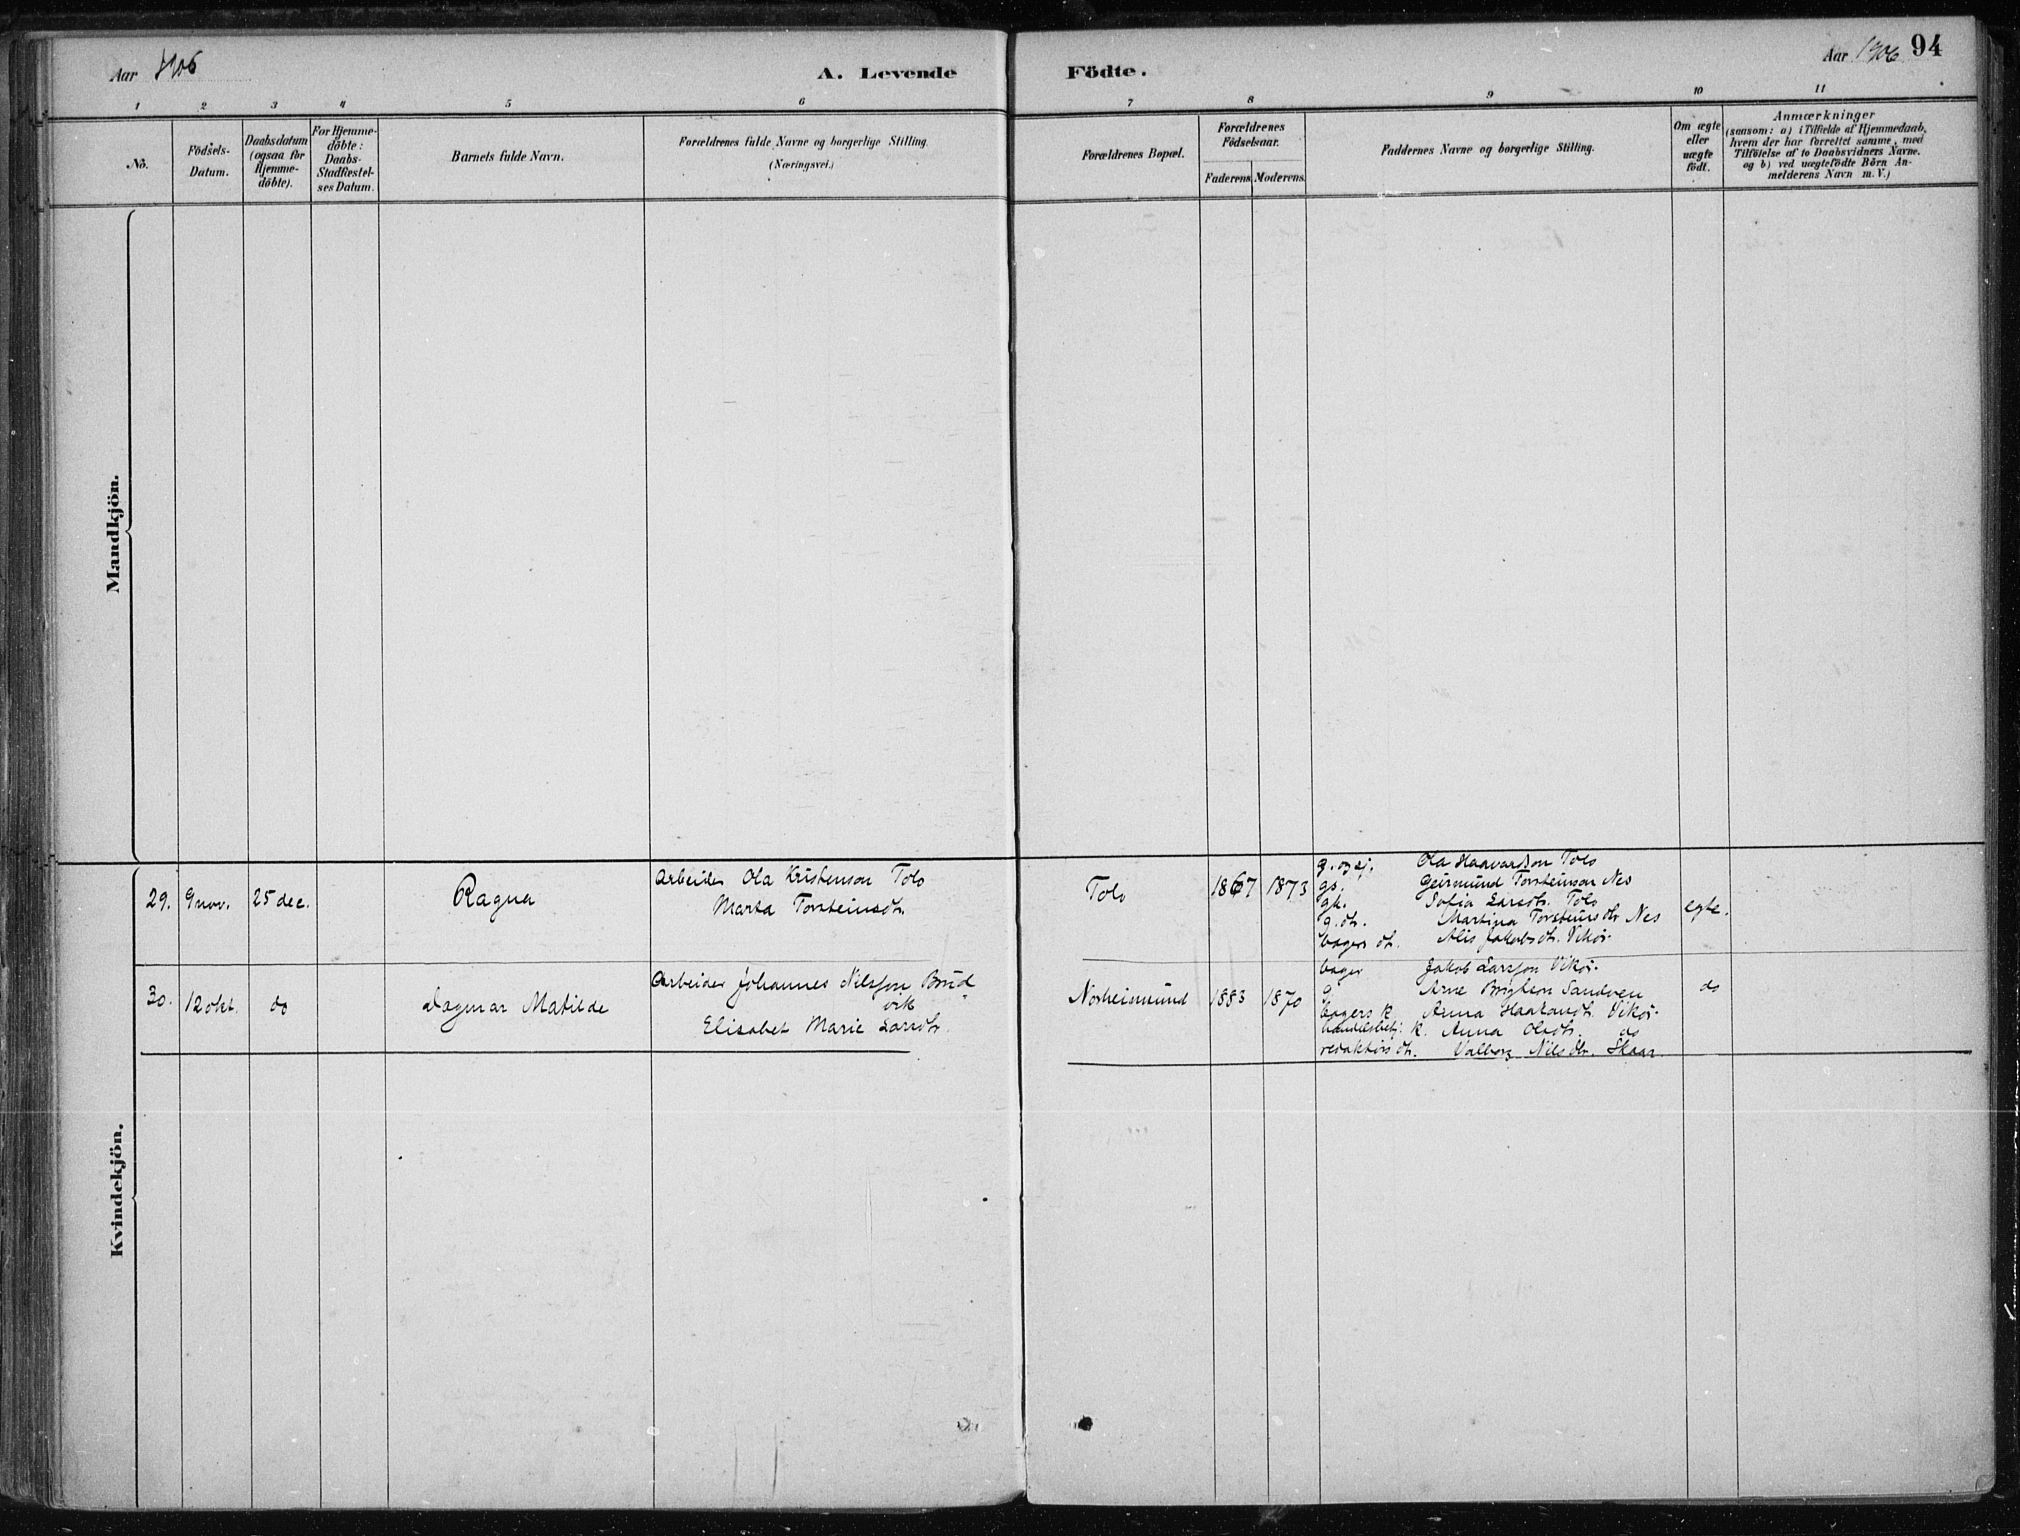 Aar 1906
A. Levende
Födte.
Aar 1906
94
1 2 3 4 5 6 7 8 9 10 11
No.
Födsels-
Datum.
Daabsdatum
(ogsaa for
Hjemme-
döbte).
For Hjemme-
döbte:
Daabs-
Stadfæstel-
ses Datum.
Barnets fulde Navn.
Forældrenes fulde Navne og borgerlige Stilling
(Næringsvei.)
Forældrenes Bopæl.
Forældrenes
Födselsaar.
Faderens.
Moderens.
Faddernes Navne og borgerlige Stilling.
Om ægte
eller
uægte
födt.
Anmærkninger
(saasom: a) i Tilfælde af Hjemmedaab,
hvem der har forrettet samme, med
Tilföielse af to Daabsvidners Navne.
og b) ved uægtefödte Börn An-
melderens Navn m.V.)
Mandkjön.
Kvindekjön.
29. 9 nov. 25 dec. Ragna
Arbeider Ola Kristenson Tolo
Marta Torsteinsdr.
Tolo 1867 1873
g. og sj. Ola Haavardson Tolo
gs. Geirmund Torsteinson Nes
gk. Sofia Larsdr. Tolo
g. dr. Martina Torsteinsdr Nes
bagers dr. Alis Jakobsdr. Vikør
egte.
30. 12 okt. do Dagmar Matilde
Arbeider Johannes Nilsson Brud
vik
Elisabet Marie Larsdr.
Norheimsund 1883 1870
bager Jakob Larsson Vikør.
g Arne Sandven
bagers k. Anna Vikør.
handelsbetj. k. Anna Olsdr. do
redaktørs dr. Valborg Nilsdr. Skaar
do